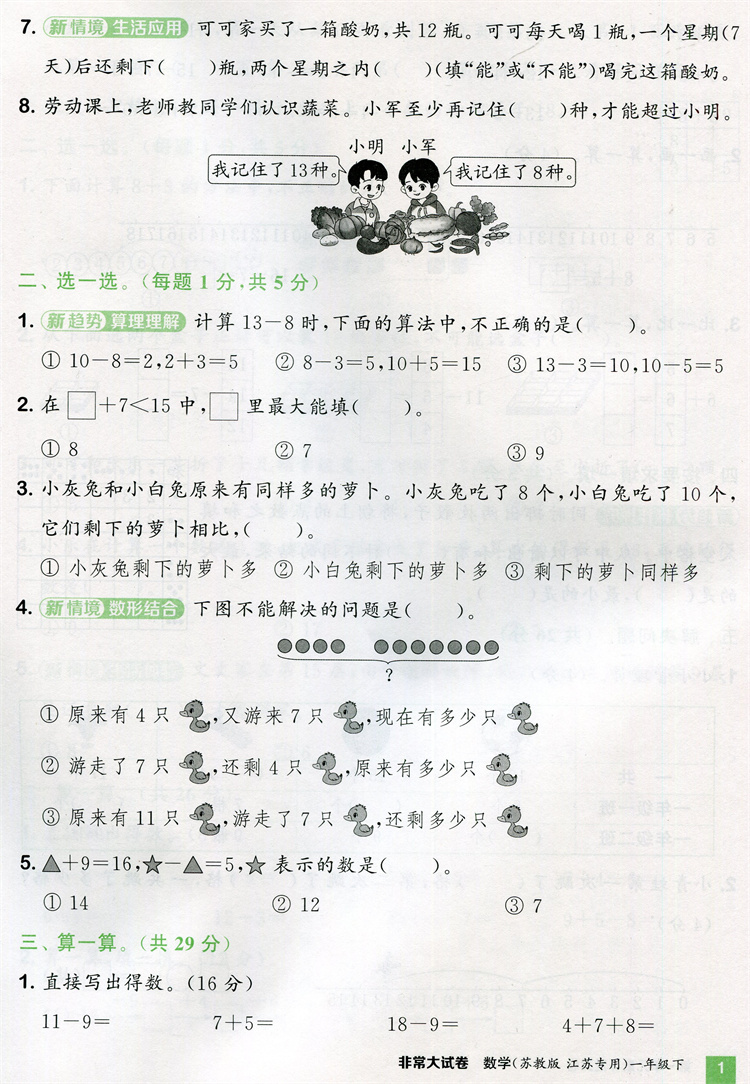 7. 新情境 生活应用 可可家买了一箱酸奶,共 12 瓶。可可每天喝 1 瓶,一个星期(7
天)后还剩下(　　)瓶,两个星期之内(　　)(填“能”或“不能”)喝完这箱酸奶。
8. 劳动课上,老师教同学们认识蔬菜。小军至少再记住(　　)种,才能超过小明。
小明 小军
我记住了 13 种。 我记住了 8 种。
二、选一选。(每题 1 分,共 5 分)
1. 新趋势 算理理解 计算 13－8 时,下面的算法中,不正确的是(　　)。
① 10－8＝2,2＋3＝5 ② 8－3＝5,10＋5＝15 ③ 13－3＝10,10－5＝5
2. 在□＋7＜15 中,□里最大能填(　　)。
① 8 ② 7 ③ 9
3. 小灰兔和小白兔原来有同样多的萝卜。小灰兔吃了 8 个,小白兔吃了 10 个,
它们剩下的萝卜相比,(　　)。
① 小灰兔剩下的萝卜多 ② 小白兔剩下的萝卜多 ③ 剩下的萝卜同样多
4. 新情境 数形结合 下图不能解决的问题是(　　)。
?
① 原来有 4 只,又游来 7 只,现在有多少只
② 游走了 7 只,还剩 4 只,原来有多少只
③ 原来有 11 只,游走了 7 只,还剩多少只
5. ▲＋9＝16,★－▲＝5,★表示的数是(　　)。
① 14 ② 12 ③ 7
三、算一算。(共 29 分)
1. 直接写出得数。(16 分)
11－9＝ 7＋5＝ 18－9＝ 4＋7＋8＝
非常大试卷 数学(苏教版 江苏专用)一年级下 1